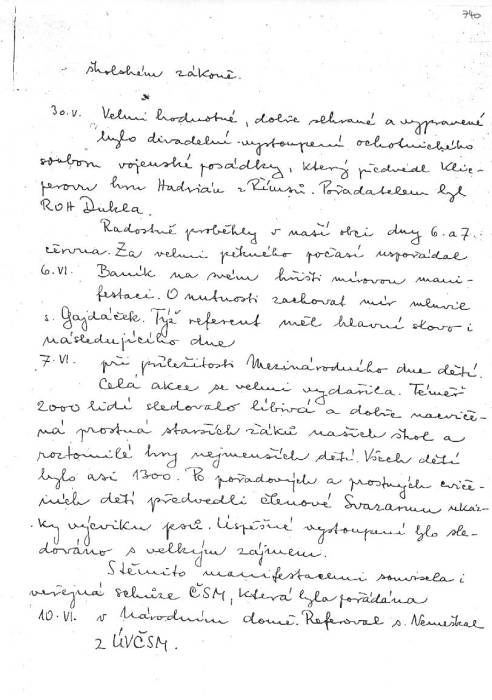 740
školském zákoně.
30.V. Velmi hodnotné, dobře sehrané a vypravené
bylo divadelní vystoupení ochotnického
souboru vojenské posádky, který předvedl Klic-
perovu hru Hadrián z Římsů. Pořadatelem byl
ROH Dukla.
Radostně proběhly v naší obci dny 6. a 7.
června. Za velmi pěkného počasí uspořádal
6.VI. Baník na svém hřišti mírovou mani-
festaci. O nutnosti zachovat mír mluvil
s. Gajdáček. Týž referent měl hlavní slovo i
následujícího dne
7.VI. při příležitosti Mezinárodního dne dětí.
Celá akce se velmi vydařila. Téměř
2000 lidí sledovalo líbivá a dobře nacviče-
ná prostná starších žáků našich škol a
roztomilé hry nejmenších dětí. Všech dětí
bylo asi 1300. Po pořadových a prostných cviče-
ních dětí předvedli členové Svazarmu ukáz-
ky výcviku psů. Úspěšné vystoupení bylo sle-
dováno s velkým zájmem.
S těmito manifestacemi souvisela i
veřejná schůze ČSM, která byla pořádána
10.VI. v Národním domě. Referoval s. Nemeškal
z ÚVČSM.